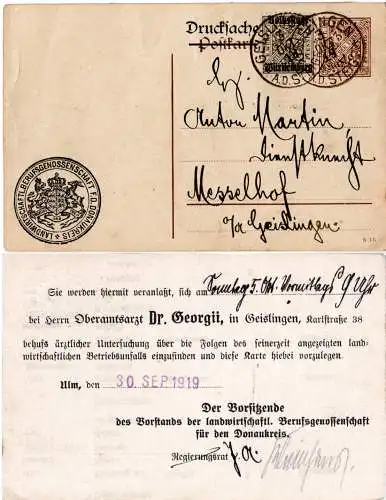 Drucksache
Postkarte
Volksstaat
Württemberg
GEISLINGEN
A.D. STEIG
A.D. STEIG
Anton Martin,
Dienstknecht
Messelhof
p/a Geislingen.
LANDWIRTSCHAFTL. BERUFSGENOSSENSCHAFT F. D. DONAUKREIS
Sie werden hiermit veranlaßt, sich am Sonntag 5. Okt. Vormittags 9 Uhr
bei Herrn Oberamtsarzt Dr. Georgii, in Geislingen, Karlstraße 38
behufs ärztlicher Untersuchung über die Folgen des seinerzeit angezeigten land-
wirtschaftlichen Betriebsunfalls einzufinden und diese Karte hiebei vorzulegen.
Ulm, den 30. SEP. 1919
Der Vorsitzende
des Vorstands der landwirtschaftl. Berufsgenossenschaft
für den Donaukreis.
Regierungsrat J. A.